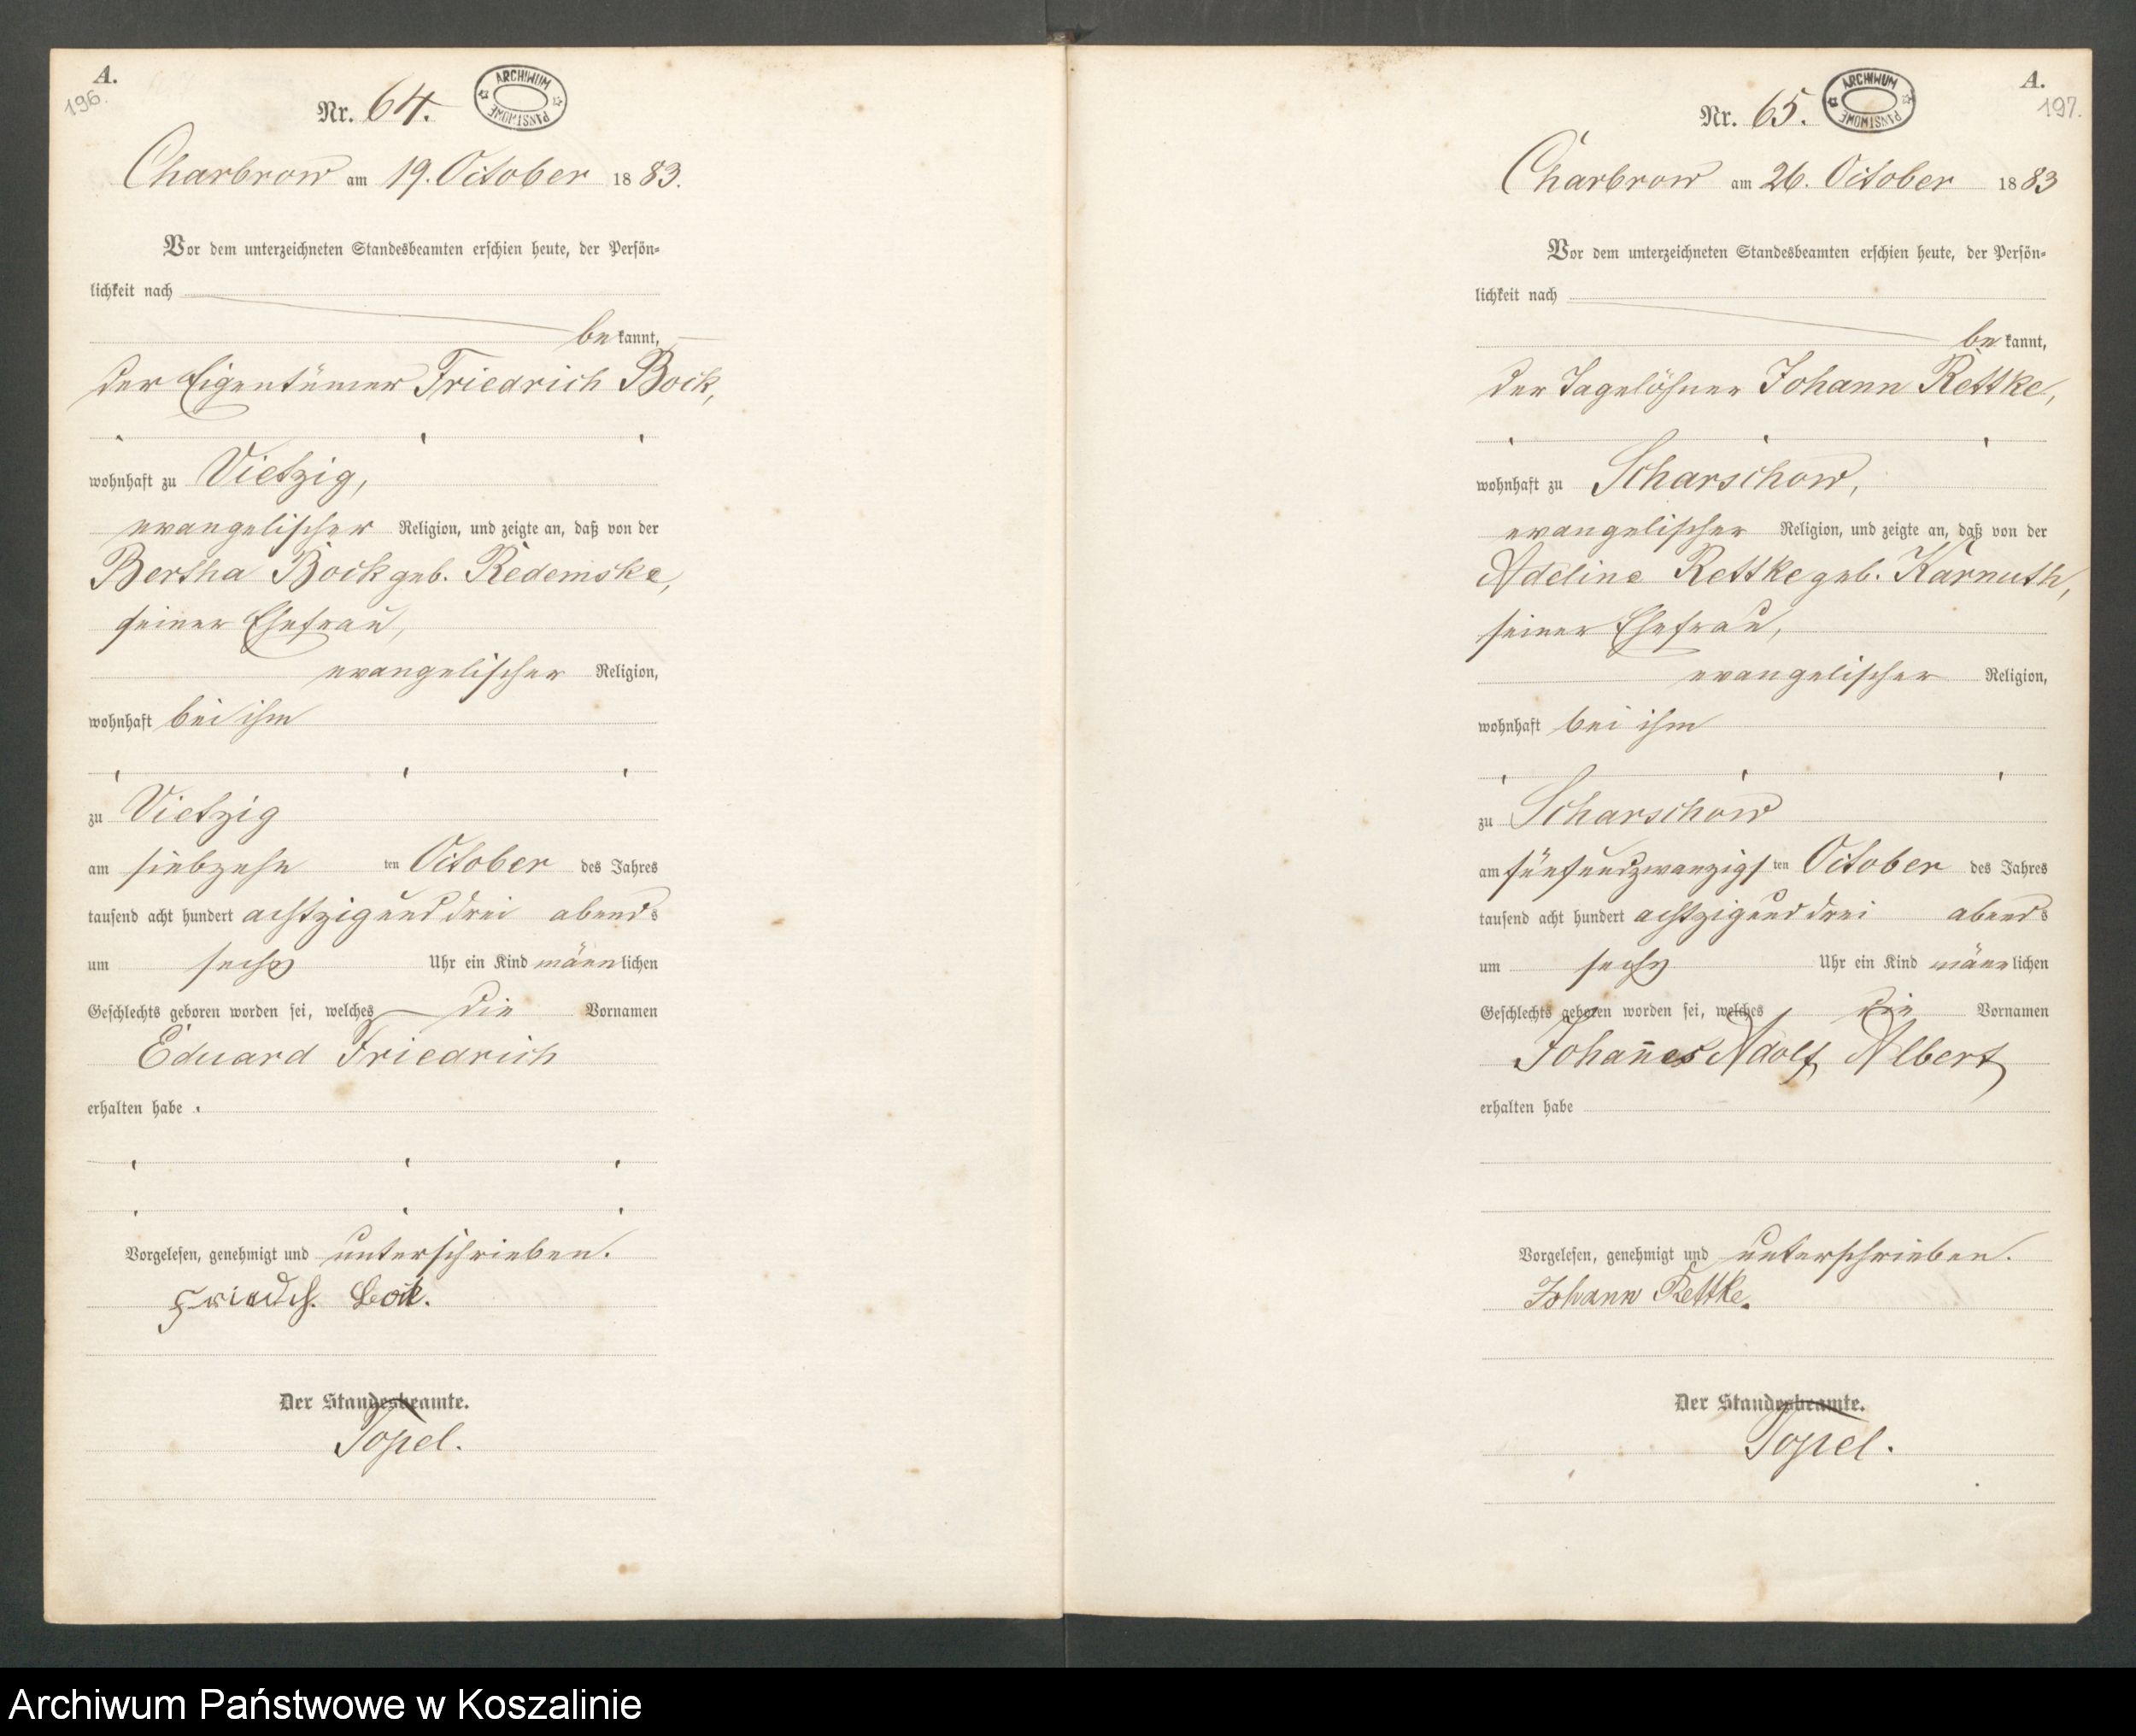 A.
196.
Nr. 64.
ARCHIWUM PAŃSTWOWE
Charbrow am 19. October 1883.
Vor dem unterzeichneten Standesbeamten erschien heute, der Persön-
lichkeit nach
be kannt,
der Eigentümer Friedrich Bock,
wohnhaft zu Vietzig,
evangelischer Religion, und zeigte an, daß von der
Bertha Bock geb. Redemske,
seiner Ehefrau,
evangelischer Religion,
wohnhaft bei ihm
zu Vietzig
am siebzehn ten October des Jahres
tausend acht hundert achtzig und drei abends
um sechs Uhr ein Kind männlichen
Geschlechts geboren worden sei, welches die Vornamen
Eduard Friedrich
erhalten habe.
Vorgelesen, genehmigt und unterschrieben.
Friedch. Bock.
Der Standesbeamte.
Topel.
A.
197.
Nr. 65.
ARCHIWUM PAŃSTWOWE
Charbrow am 26. October 1883
Vor dem unterzeichneten Standesbeamten erschien heute, der Persön-
lichkeit nach
be kannt,
der Tagelöhner Johann Rettke,
wohnhaft zu Scharschow,
evangelischer Religion, und zeigte an, daß von der
Adeline Rettke geb. Karnuth,
seiner Ehefrau,
evangelischer Religion,
wohnhaft bei ihm
zu Scharschow
am fünfundzwanzigs ten October des Jahres
tausend acht hundert achtzig und drei abends
um sechs Uhr ein Kind männlichen
Geschlechts geboren worden sei, welches die Vornamen
Johan̄es Adolf Albert
erhalten habe
Vorgelesen, genehmigt und unterschrieben.
Johann Rettke.
Der Standesbeamte.
Topel.
Archiwum Państwowe w Koszalinie